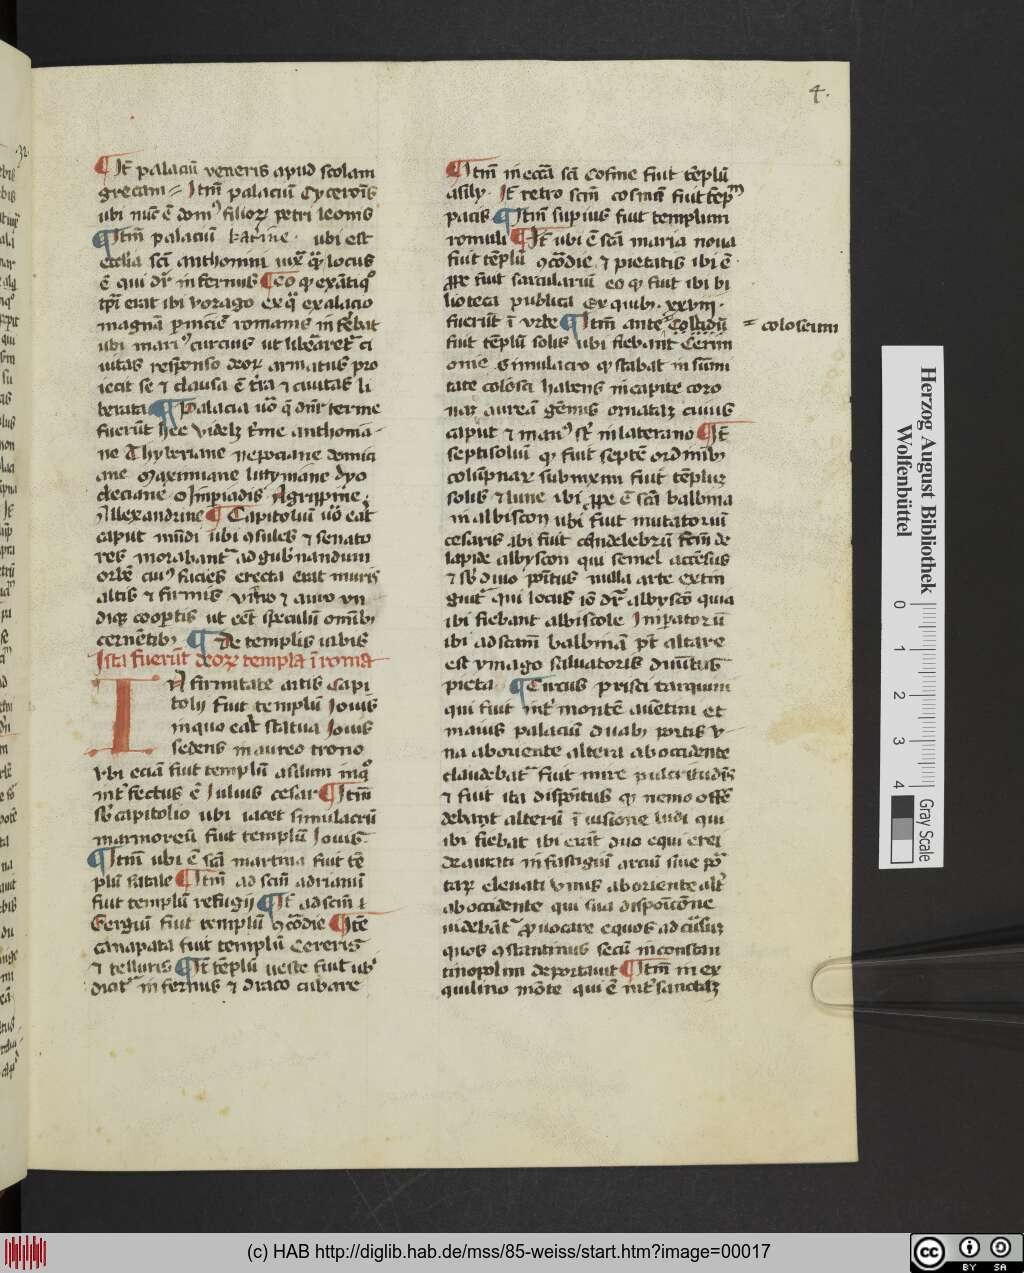 4.
¶ It͞ palaciū veneris apud scolam
grecam = Itm̄ palaciū Cycerōis
ubi nūc ē domꝰ filioꝝ petri leonis
¶ Itm̄ palaciū katine · ubi est
eccl̄ia sc̄i anthonini iux̄ q̄ locus
ē qui dr̄ infernus ¶ eo ꝙ exātiqͦ
tp̄r̄ erat ibi vorago ex q̄ exalacio
magnā p̄niciē romanis inferebat
ubi marꝰ curcius ut lib̄aret᷑ ci
uitas responso deoꝝ armatus pro
iecit se ⁊ clausa ē t̄ra ⁊ ciuitas li
berata ¶ Palacia vͦo q̄ dn̄r terme
fuerūt hec videlꝫ t̄me anthonia-
ne Thyberiane nepociane domici
ane Maximiane lucymiane dyo
cleciane olimpiadis Agrippine ·
Allexandrine ¶ Capitoliū vͦo eāt
caput mūdi ubi ꝯsules ⁊ senato
res morabant᷑ ad gub̄nandum
orbē cuiꝰ facies erecta erat muris
altis ⁊ firmis vitͦo ⁊ auro vn
diqꝫ cooꝑtis ut eēt speculū omībꝫ
cernētibꝫ ¶ De templis urbis
Ista fuerūt deoꝝ templa ī roma
IN firmitate artis Capi
tolij fuit templū Iouis
in quo eāt statua Iouis
sedens in aureo trono
vbi eciā fuit templū asilum inqͦ
int̄fectus ē Iulius cesar ¶ Itm̄
sr̄ capitolio ubi iacet simulacrū
marmoreū fuit templū Iouis
¶ Itm̄ ubi ē sc̄a martina fuit tē
plū fatale ¶ Itm̄ ad scm̄ adrianū
fuit templū refugij ¶ It͞ ad scm̄ s
Sergiū fuit templū ꝯcordie ¶ Itē
canapara fuit templū Cereris
⁊ telluris ¶ It͞ tēplū veste fuit ubi
dicit᷑ infernus ⁊ draco cubare
¶ Itm̄ in ecc̄a sc̄i Cosme fuit tēplū
asily · It͞ retro scm̄ cosmā fuit tēpᵐ
pacis ¶ Itm̄ supius fuit templum
romuli ¶ It͞ ubi ē sc̄a maria noua
fuit tēplū ꝯcordie ⁊ pietatis ibi ē
ꝓpe fuit sartulariū eo ꝙ fuit ibi bi
blioteca publica Ex quibꝫ · xxviij ·
fuerūt ī vrbe ¶ Itm̄ ante Collidū = coloseum
fuit tēplū solis ubi fiebant Cerim
onie simulacro ꝙ stabat in summi
tate colosei habens in capite coro
naꝫ aureā gēmis ornataꝫ cuius
caput ⁊ manꝰ sūt in laterano ¶ It͞
septisoliū ꝙ fuit septē ordinibꝫ
colūpnaꝝ submxni fuit tēpluꝫ
solis ⁊ lune ibi ꝓpe ē sc̄a balbina
in albiston ubi fuit mutatoriū
cesaris ibi fuit candelebrū fc̄m de
lapide albyston qui semel accēsus
⁊ sb̄ diuo pōitus nulla arte extin
guit᷑ qui locus iō dr̄ albystō quia
ibi fiebant albistole Imperatorū
ibi ad sc̄am balbinā pt̄ altare
est ymago saluatoris diuitus
picta · ¶ Circus prisci tarquini
qui fuit int̄ montē auētini et
maius palaciū duabꝫ portis v
na ab oriente altera ab occidente
claudebat᷑ fuit mire pulcritudīs
⁊ fuit ita dispōitus ꝙ nemo offē
debant alterū ī visione ludi qui
ibi fiebat ibi erāt duo equi erei
deaurati in fastigiū arcuū siue por̄
taꝝ eleuati vnus ab oriente alt̄
ab occidente qui sua disposicōne
uidebāt᷑ ꝓuocare equos ad cūsuꝫ
quos ꝯstantinus secū in constan
tinopolim deportauit ¶ Itm̄ in ex
quilino mōte qui ē int̄ sanctaꝫ
Herzog August Bibliothek
Wolfenbüttel
0 1 2 3 4
Gray Scale
(c) HAB http://diglib.hab.de/mss/85-weiss/start.htm?image=00017
cc BY SA